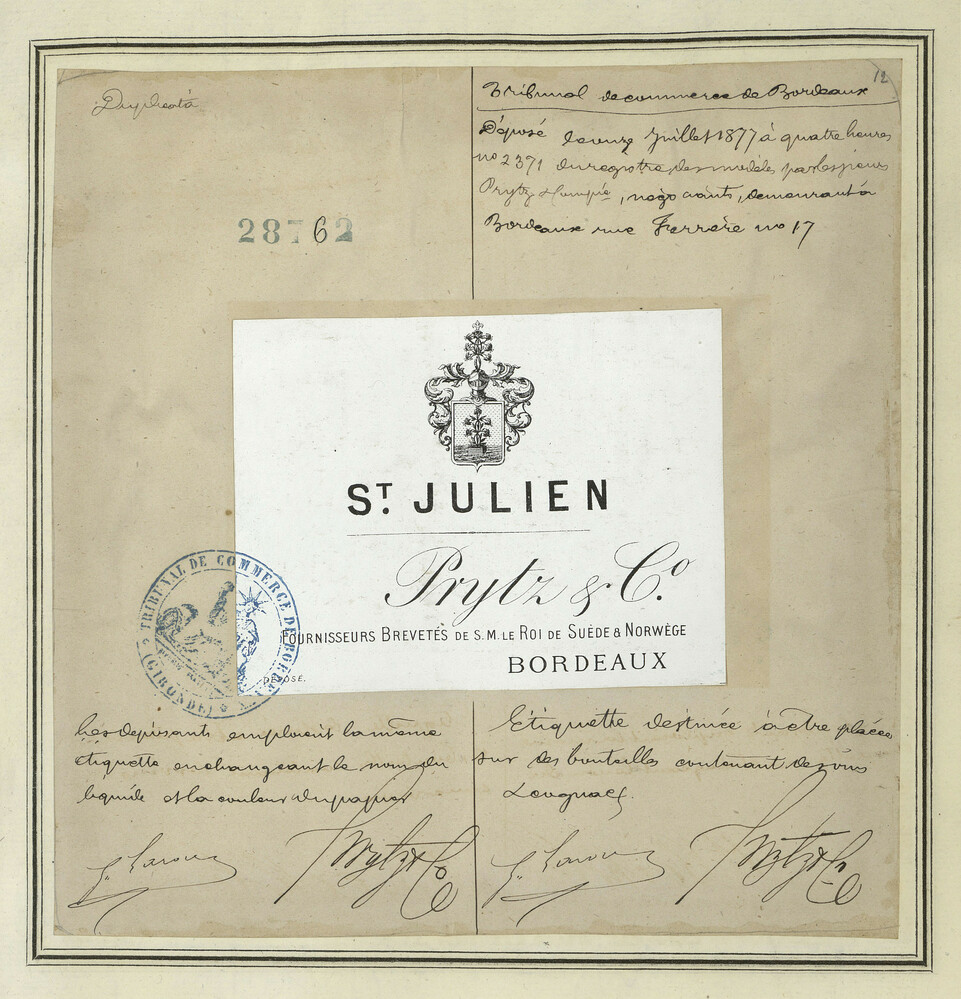 12
Duplicata
Tribunal de commerce de Bordeaux
Déposé le onze Juillet 1877 à quatre heures
no 2371 du registre des modèles par les sieurs
Prytz & Compie, négociants, demeurant à
Bordeaux rue Ferrère no 17
28762
ST. JULIEN
Prytz & Co.
FOURNISSEURS BREVETÉS DE S. M. LE ROI DE SUÈDE & NORWÈGE
BORDEAUX
DÉPOSÉ.
TRIBUNAL DE COMMERCE DE BORDEAUX
(GIRONDE)
Les déposants emploient la même
étiquette en changeant le nom du
liquide et la couleur du papier
Etiquette destinée à être placée
sur des bouteilles contenant des vins
Prytz & Co
Prytz & Co